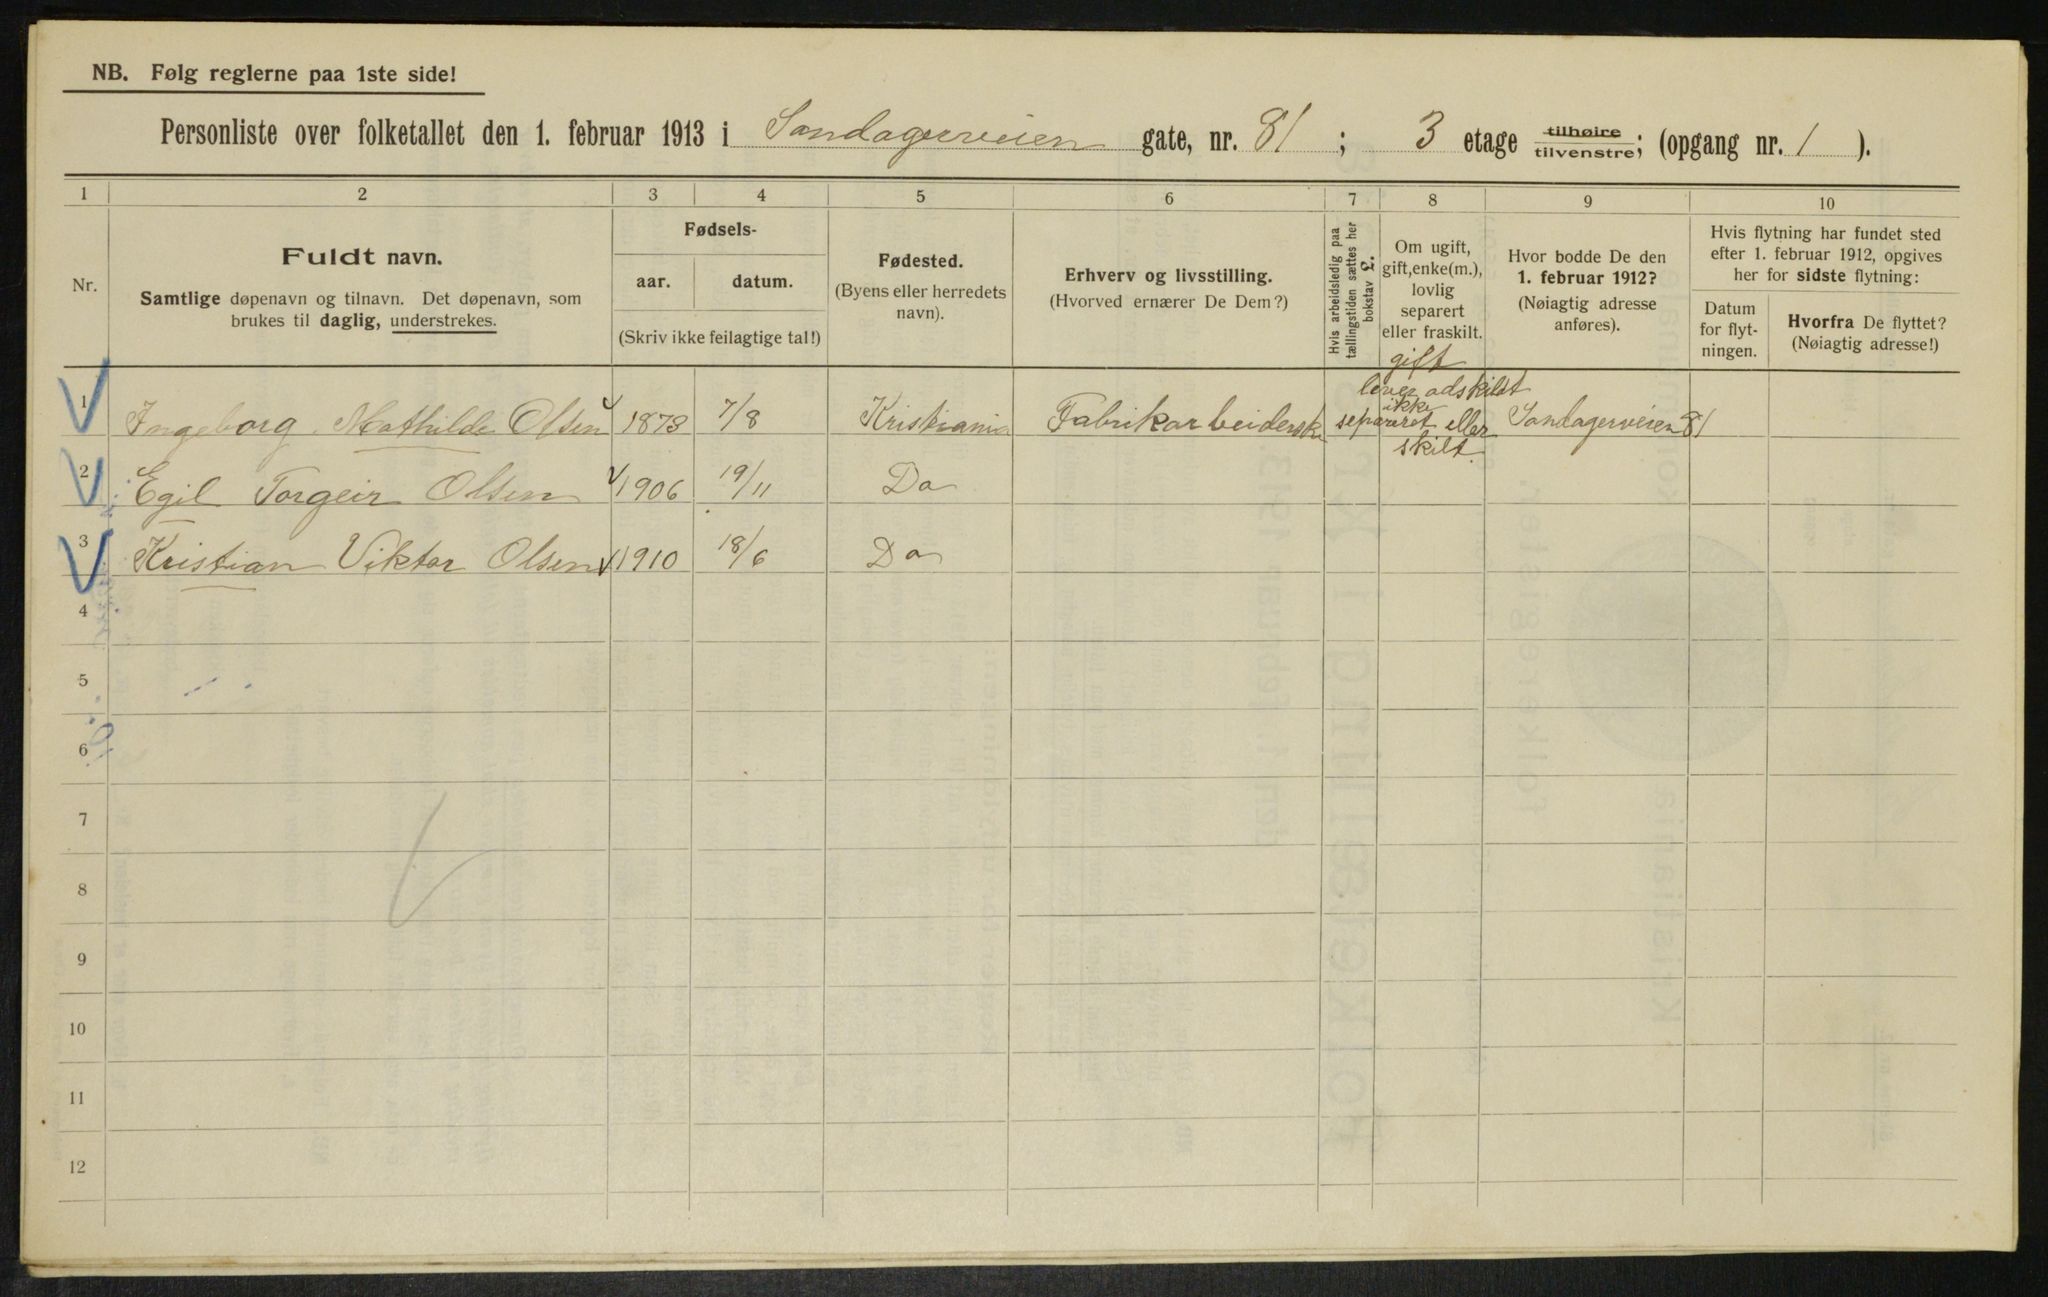 NB. Følg reglerne paa 1ste side!
Personliste over folketallet den 1. februar 1913 i Sandagerveien gate, nr. 81 ; 3 etage tilhøire tilvenstre; (opgang nr. 1 ).
1 2 3 4 5 6 7 8 9 10
Nr.
Fuldt navn.
Samtlige døpenavn og tilnavn. Det døpenavn, som
brukes til daglig, understrekes.
Fødsels-
aar. datum.
(Skriv ikke feilagtige tal!)
Fødested.
(Byens eller herredets
navn).
Erhverv og livsstilling.
(Hvorved ernærer De Dem?)
Hvis arbeidsledig paa
tællingstiden sættes her
bokstav £.
Om ugift,
gift, enke(m.),
lovlig
separert
eller fraskilt.
Hvor bodde De den
1. februar 1912?
(Nøiagtig adresse
anføres).
Hvis flytning har fundet sted
efter 1. februar 1912, opgives
her for sidste flytning:
Datum
for flyt-
ningen.
Hvorfra De flyttet?
(Nøiagtig adresse!)
1 Ingeborg Mathilde Olsen 1873 7/8 Kristiania Fabrikarbeiderske
gift
lever adskildt
ikke
separeret eller
skilt.
Sandagerveien 81
2 Egil Torgeir Olsen 1906 19/11 Do
3 Kristian Viktor Olsen 1910 18/6 Do
4
5
6
7
8
9
10
11
12